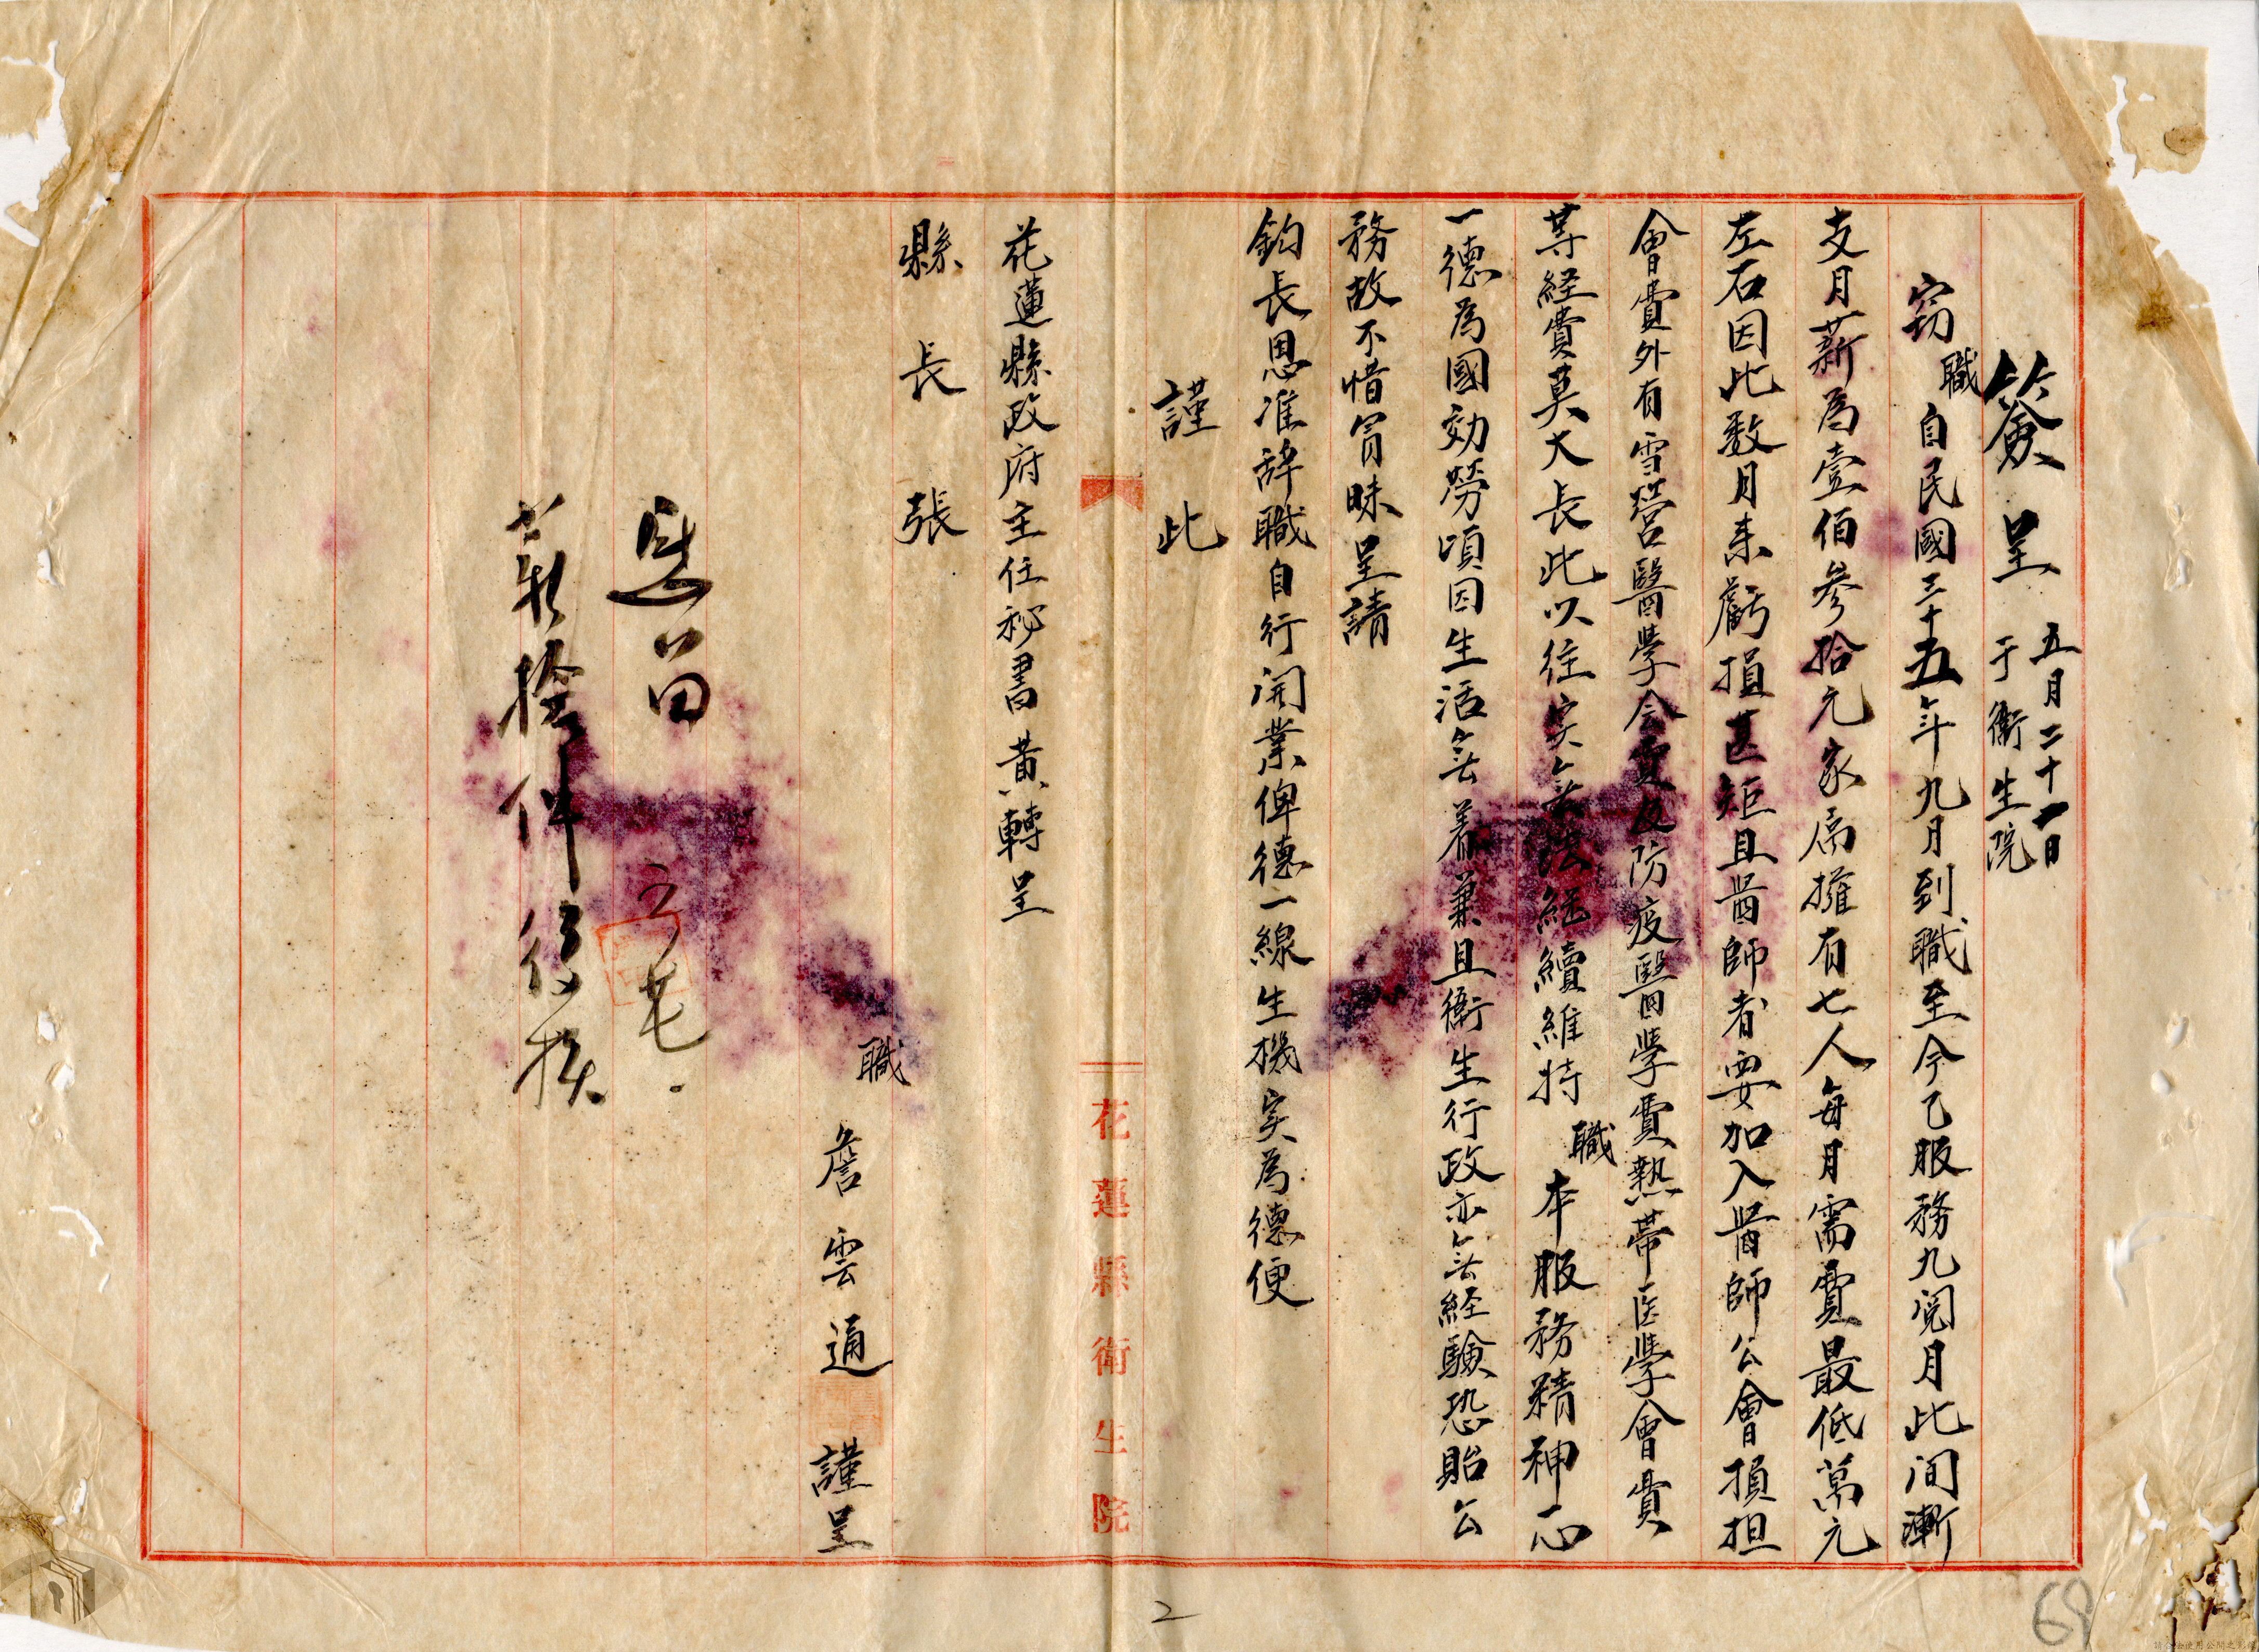 簽呈 五月二十一日 于衛生院
竊職自民國三十五年九月到職至今已服務九閱月此间漸
支月薪為壹佰參拾元家屬擁有七人每月需費最低萬元
左右因此数月来虧損甚矩且醫師者要加入醫師公會損担
會費外有雪營醫學会費及防疫醫學費熱帯医學會費
等経費莫大長此以往实無法継續維持職本服務精神一心
一德為國効勞頃因生活無着兼且衛生行政亦無経驗恐貽公
務故不惜冒昧呈請
鈞長恩准辞職自行開業俾德一線生機实為德便
謹此
花蓮縣政府主任秘書黄轉呈
縣長張
職詹雲通謹呈
慰留
花蓮縣衛生院
2
69